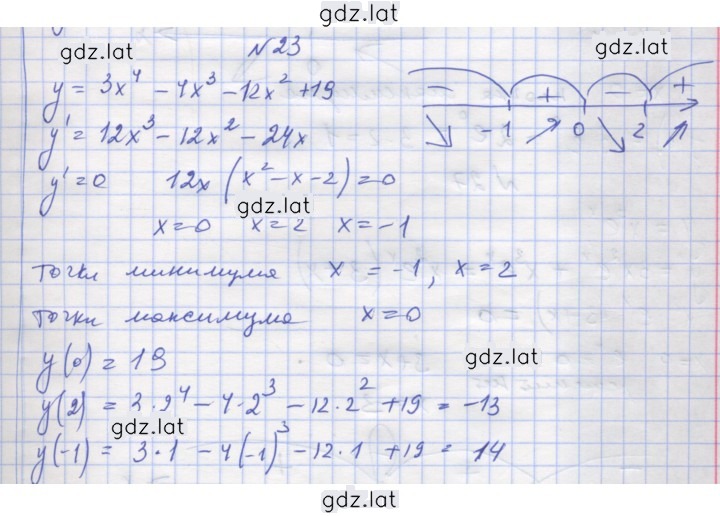 gdz.lat
gdz.lat
N23
gdz.lat
y = 3x⁴ - 4x³ - 12x² + 19
- + - +
y' = 12x³ - 12x² - 24x
-1 0 2
y' = 0 12x (x² - x - 2) = 0
gdz.lat
x = 0 x = 2 x = -1
точки минимума x = -1, x = 2
точки максимума x = 0
y(0) = 19
gdz.lat
y(2) = 3·2⁴ - 4·2³ - 12·2² + 19 = -13
gdz.lat
y(-1) = 3·1 - 4(-1)³ - 12·1 + 19 = 14
gdz.lat